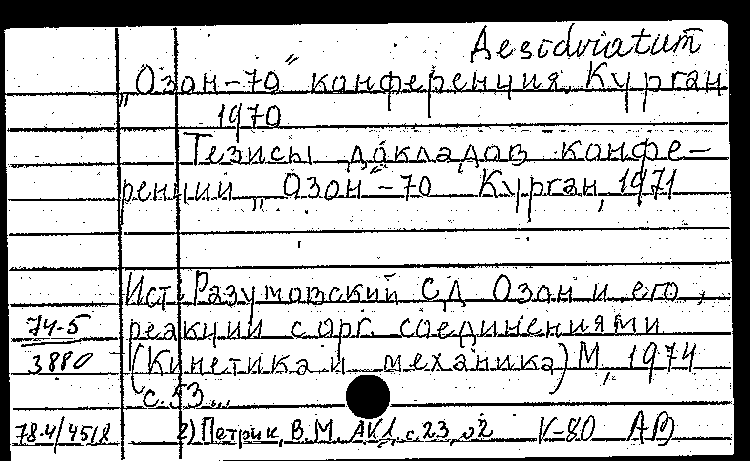 Desidviatum
„Озон-70" конференция, Курган
1970
Тезисы докладов конфе-
ренции „Озон"-70 Курган, 1971
Ист: Разумовский СД Озон и его
74-5 реакции с орг. соединениями
3880 (Кинетика и механика) М, 1974
с. 53...
2) Петрик, В.М. с. 23, V-80